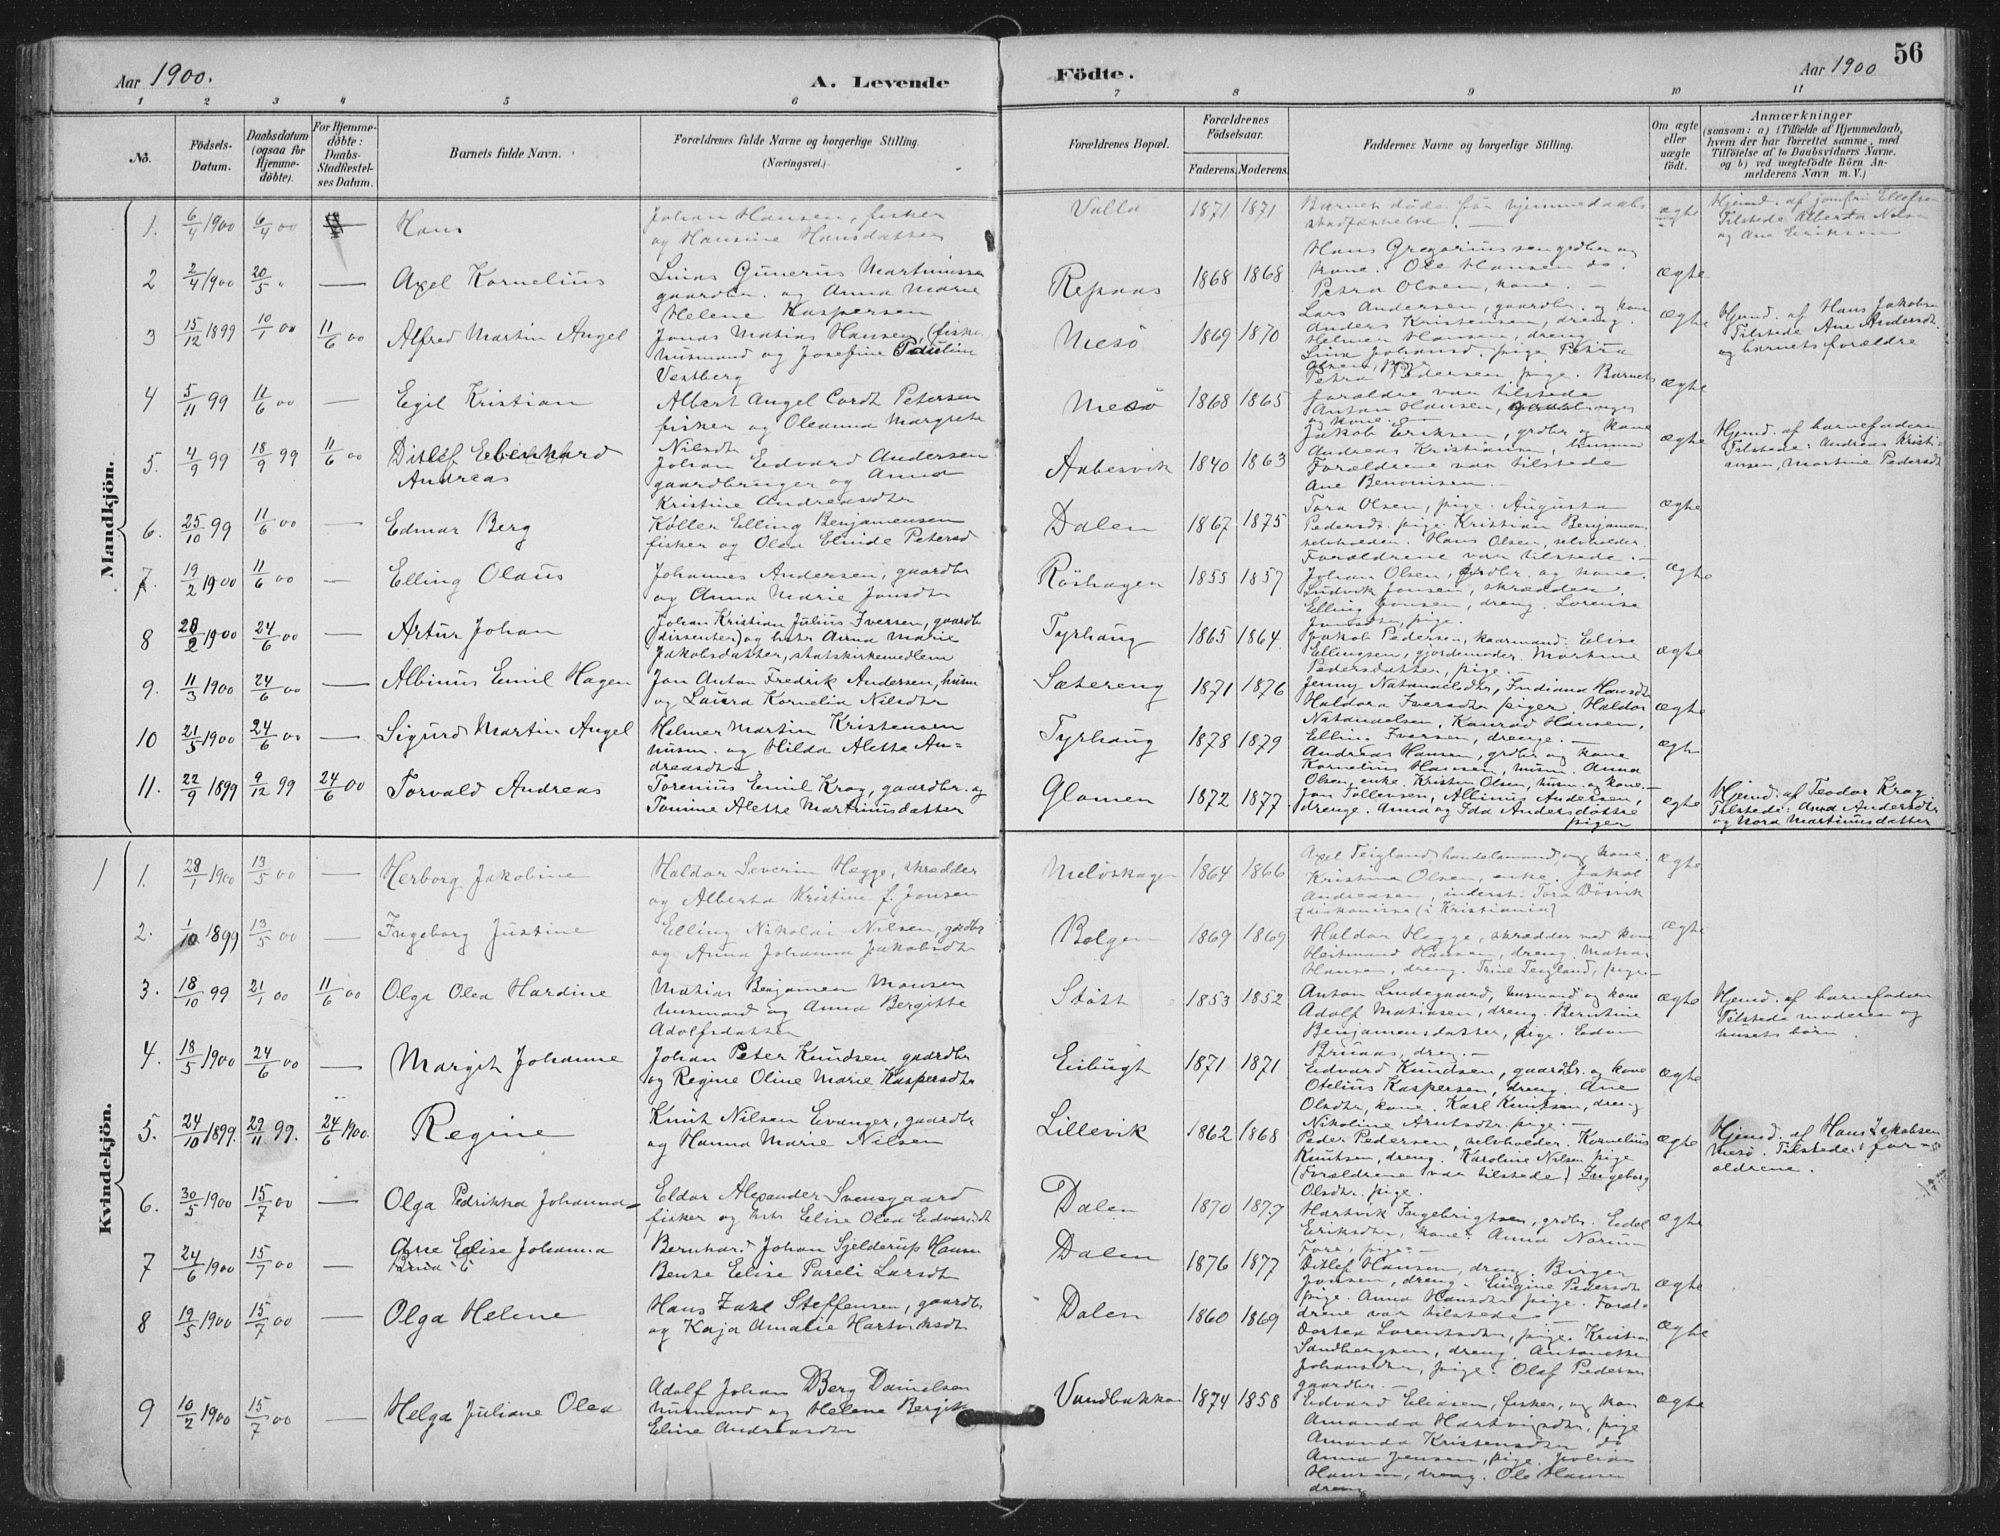 56
Aar 1900.
A. Levende
Födte.
Aar 1900
1 2 3 4 5 6 7 8 9 10 11
No.
Födsels-Datum.
Daabsdatum (ogsaa for Hjemme-döbte).
For Hjemme-döbte: Daabs-Stadfæstel-ses Datum.
Barnets fulde Navn.
Forældrenes fulde Navne og borgerlige Stilling. (Næringsvei.)
Forældrenes Bopæl.
Forældrenes Födselsaar.
Faderens. Moderens.
Faddernes Navne og borgerlige Stilling.
Om ægte eller uægte födt.
Anmærkninger
(saasom: a) i Tilfælde af Hjemmedaab, hvem der har forrettet samme, med Tilföielse af to Daabsvidners Navne. og b) ved uegtefödte Börn An-melderens Navn m. V.)
Mandkjön.
1. 6/4 1900 6/4 00 Hans
Johan Hansen, fisker
og Hansine Hansdatter
Valla 1871 1871
Barnet døde før hjemmedaabs
stadfæstelse. —
ægte
Hjemd. af jomfru Ellefsen
Tilstede Alberta Nilsen
og Ane Eriksen
2 2/4 1900 20/5 " — Axel Kornelius
Linas Gunerus Martinussen
gaardbr. og Anna Marie
Helene Kaspersen
Repaas 1868 1868
Hans Gregoriussen grdbr og
kone. Ole Hansen do.
Petra Olsen, kone. —
ægte
3 15/12 1899 10/1 00 11/6 00 Alfred Martin Angel
Jonas Matias Hansen, (fisker
husmand og Josefine Pauline
Vestberg
Mesö 1869 1870
Lars Andersen, gaardbr. og kone
Anders Kristensen, dreng.
Helmer Hansen, dreng.
Lina Johansd. pige Petra
Olsen, pige
ægte
Hjemd. af Hans Jakobsen
Tilstede Ane Andersdt.
og barnets forældre
4 5/11 99 11/6 00 — Egil Kristian
Albert Angel Cordt Petersen
fisker og Oleanna Margrete
Nilsdt
Mesö 1868 1865
Petra Pedersen pige. Barnets
forældre var tilstede
Anton Hansen, gaardbruger
og kone. —
ægte
5. 4/9 99 18/9 99 11/6 00 Ditlef Ebenhard
Andreas
Johan Edvard Andersen
gaardbruger og Anna
Kristine Andreasdtr
Aabesvik 1840 1863
Jakob Eriksen, grdbr og kone
Andreas Kristiansen, husmand
Forældrene var tilstede
Ane Benonisen. —
ægte
Hjemd. af barnefaderen
Tilstede: Andreas Kristi-
ansen, Martine Pedersdt
6. 25/10 99 11/6 00 — Edmar Berg
Køller Elling Benjamensen
fisker og Olea Elnide Petersd
Dalen 1867 1875
Tora Olsen, pige. Augusta
Pedersdt. pige. Kristian Benjamen
selvholder. Hans Olsen, selvholder.
Forældrene var tilstede. —
ægte
7. 19/2 1900 11/6 00 — Elling Olaus
Johannes Andersen, gaardbr
og Anna Marie Jonsdtr
Röshagen 1855 1857
Johan Olsen, grdbr. og kone.
Ludvik Jonsen, skrædder
Elling Jonsen, dreng. Lorense
Jonsdtr, pige.
ægte
8 28/2 1900 24/6 00 — Artur Johan
Johan Kristian Julius Iversen, gaardbr
(dissenter) og hstr Anna Marie
Jakobsdatter, statskirkemedlem
Tyrhaug 1865 1864
Jakob Pedersen, kaarmand. Elise
Ellingsen, gjordemoder. Martine
Pedersdatter, pige. —
ægte
9. 11/3 1900 24/6 00 — Albinus Emil Hagen
Jan Anton Fredrik Andersen, husm
og Laura Kornelia Nilsdtr
Sætereng 1871 1876
Jenny Natanaelsdtr, Indiana Hansdtr
Haldora Iversdtr piger. Haldor
Natanaelsen, Konrad Hansen,
Elling Iversen, drenge. —
ægte
10 21/5 1900 24/6 00 — Sigurd Martin Angel
Helmer Martin Kristensen
husm. og Hilda Alette An-
dreasdtr
Tyrhaug 1878 1879
Andreas Hansen, grdbr og kone
Kornelius Hansen, husm. Anna
Olsen, enke. Kristen Olsen, husm. og kone. —
ægte
11. 22/9 1899 9/12 99 24/6 00 Torvald Andreas
Torenius Emil Krog, gaardbr. og
Tomine Alette Martinusdatter
Glomen 1872 1877
Jan Tollevsen, Albinus Andersen,
drenge. Anna og Ida Andersdøttre
piger
ægte
Hjemd. af Teodor Krog
Tilstede: Anna Andersdtr
og Nora Martinusdatter
Kvindekjön.
1. 28/1 1900 13/5 00 — Herborg Jakobine
Haldor Severin Hegge, skrædder
og Alberta Kristine f. Jonsen
Meløskagen 1864 1866
Axel Teigland, handelsmand og kone.
Kristina Olsen, enke. Jakob
Andreasen, inderst. Tora Døsvik
(diakonisse (i Kristiania)
ægte
2. 1/10 1899 13/5 00 — Ingeborg Justine
Elling Nikolai Nilsen, grdbr
og Anna Johanna Jakobsdtr
Bolgen 1869 1869
Haldor Hegge, skrædder med kone
Hertmand Hansen, dreng. Matias
Hansen, dreng. Trine Teigland, pige —
ægte
3. 18/10 99 21/1 00 11/6 00 Olga Olea Hardine
Matias Benjamen Monsen
husmand og Anna Bergitte
Adolfsdatter
Støtt 1853 1852
Anton Lindegaard, husmand og kone
Adolf Matiasen, dreng. Berntine
Benjamensdatter, pige. Edvin
Bruaas, dreng. —
ægte
Hjemd. af barnefaderen
Tilstede moderen og
husets börn
4. 18/5 1900 24/6 00 — Margit Johanne
Johan Peter Knudsen gaardbr
og Regine Oline Marie Kaspersdtr
Eisbugt 1871 1871
Edvard Knudsen, gaardbr. og kone
Otelius Kaspersen, dreng. Ane
Olsdtr, kone. Karl Knutsen, dreng
Nikoline Arntsdtr pige. —
ægte
5. 24/10 1899. 29/11 99. 24/6 1900. Regine
Knut Nilsen Evanger, gaardbr
og Hanna Marie Nilsen
Lillevik 1862 1868
Peder Pedersen, selvholder. Kornelius
Knutsen, dreng. Karoline Nilsen pige
(Forældrene var tilstede) Ingeborg
Olsdtr. pige.
ægte
Hjemd. af Hans Jakobsen
Mesö. Tilstede: for-
ældrene.
6. 30/5 1900 15/7 00 — Olga Pedrikka Johanna
Eldor Alexander Svensgaard
fisker og hstr Elise Olea Edvardsdt
Dalen 1870 1877
Hartvik Ingebrigtsen, grdbr. Eidel
Eriksdtr, kone. Anna Norum
Fore, pige. —
ægte
7 24/6 1900 15/7 00 — Ane Elise Johanna
Bernhard Johan Sjelderup Hansen
Bense Elise Pareli Larsdtr
Dalen 1876 1877
Ditlef Hansen, dreng. Birger
Jonsen, dreng. Lingine Pedersdtr
pige. Anna Hansdtr pige. Foræl-
drene var tilstede —
ægte
8 19/5 1900 15/7 00 — Olga Helene
Hans Zakl Steffensen, gaardbr
og Kaja Amalie Hartviksdtr
Dalen 1860 1869
Dortea Lorentsdtr, pige. Kristian
Sandbergsen, dreng. Antonette
Johansdtr, pige. Olaf Pedersen
gaardbr. —
ægte
9 10/2 1900 15/7 00 — Helga Juliane Olea
Adolf Johan Berg Danielsen
husmand og Helene Bergitte
Eline Andreasdtr
Vandbakken 1874 1858
Edvard Eliasen, fisker, og kone
Amanda Hartvigsdtr, pige
Amanda Kristensdtr do
Anna Jensen, pige. Julian
Hansen, dreng. Ole Hansen
dreng
ægte